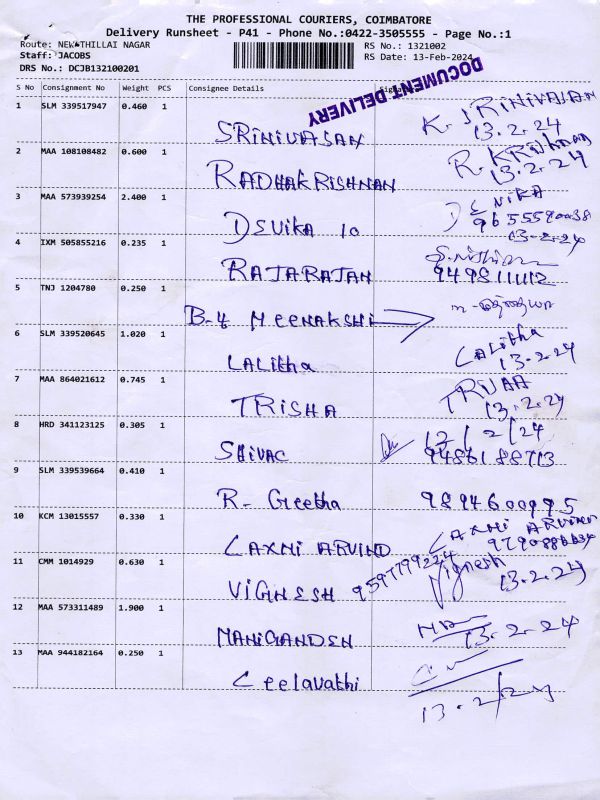 THE PROFESSIONAL COURIERS, COIMBATORE
Delivery Runsheet - P41 - Phone No.:0422-3505555 - Page No.:1
Route: NEW THILLAI NAGAR
RS No.: 1321002
Staff: JACOBS
RS Date: 13-Feb-2024
DRS No.: DCJB132100201
DOCUMENT DELIVERY
S No Consignment No Weight PCS Consignee Details
1 SLM 339517947 0.460 1 SRINIVASAN K. SRINIVASAN 13.2.24
2 MAA 108108482 0.600 1 RADHAKRISHNAN 13.2.24
3 MAA 573939254 2.400 1 DEVIKA 10 13-2-24
4 IXM 505855216 0.235 1 RAJARAJAN
5 TNJ 1204780 0.250 1 B-4 MEENAKSHI
6 SLM 339520645 1.020 1 LALitha LALitha 13.2.24
7 MAA 864021612 0.745 1 TRISHA 13.2.24
8 HRD 341123125 0.305 1 13/2/24
9 SLM 339539664 0.410 1 R- Geetha 9894600995
10 KCM 13015557 0.330 1 LAXMI ARVIND LAXMI
11 CMM 1014929 0.630 1 VIGNESH 9597799224 Vignesh 13.2.24
12 MAA 573311489 1.900 1 13.2.24
13 MAA 944182164 0.250 1 Leelavathi 13.2/24